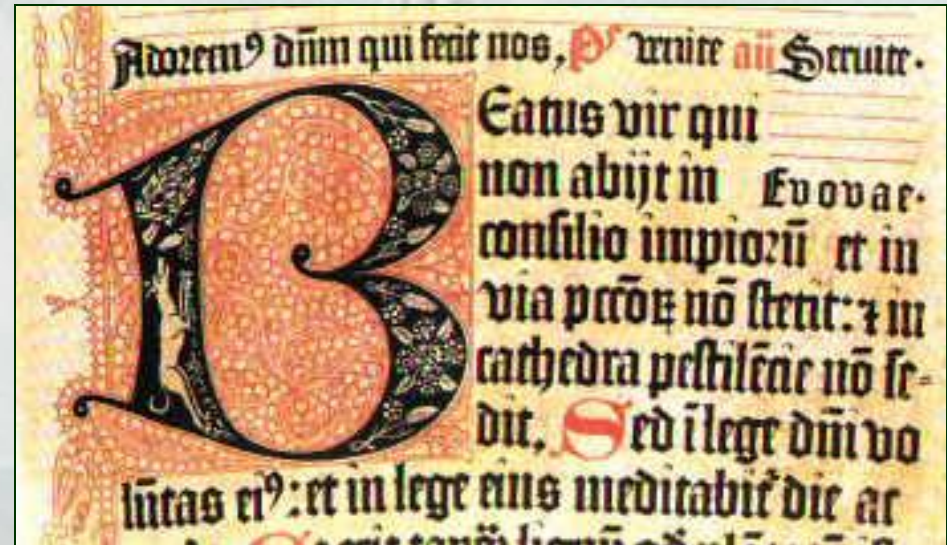 Adorem⁹ dn̄m qui fecit nos, Ps̄ venite an̄ Seruite.
BEatus vir qui
non abijt in Evovae.
consilio impioꝝū et in
via pccōꝝ nō stetit: ⁊ in
cathedra pestilēcie nō se-
dit. Sed ī lege dn̄i vo
lūtas ei⁹: et in lege eius meditabit̄ die ac